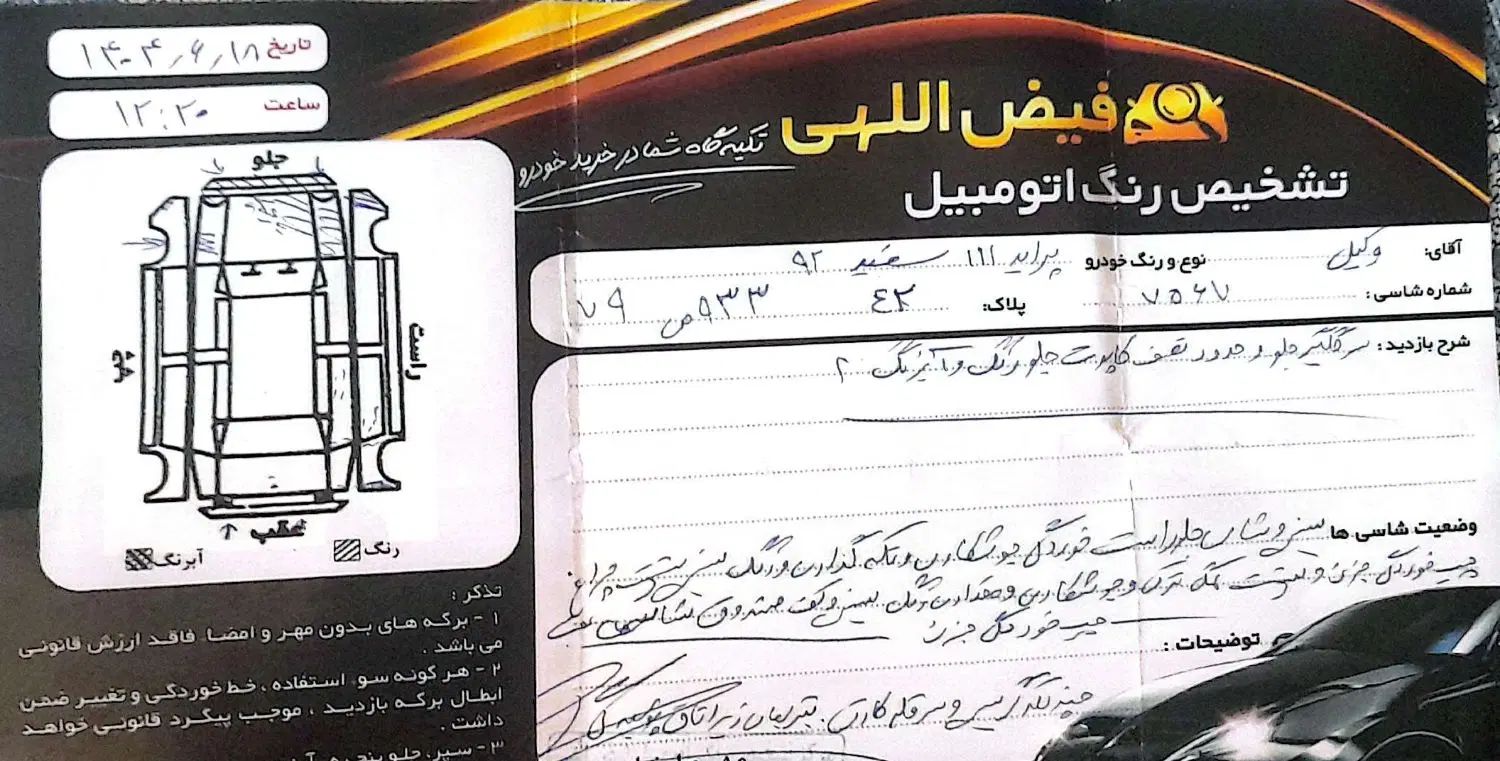 تاریخ ۱۴۰۴/۶/۱۸
ساعت ۱۲:۲۰
فیض اللهی
تکیه گاه شما در خرید خودرو
تشخیص رنگ اتومبیل
آقای: وکیل نوع و رنگ خودرو پراید ۱۱۱ سفید ۹۲
شماره شاسی: ۷۵۶۷ پلاک: ۴۲ ۹۳۳ ص ۷۹
شرح بازدید: گلگیر جلو و حدود نصف کاپوت جلو رنگ و آبرنگ
وضعیت شاسی ها سینی و شاسی جلو راست خوردگی جوشکاری و تکه گذاری و رنگ سینی پشت چراغ
چپ خوردگی جزئی و جوشکاری و مقداری رنگ سینی و کف صندوق
چپ خوردگی جزئی
توضیحات:
چند لکه گیری و زیر اتاق پوسیدگی
جلو
راست
چپ
عقب
رنگ
آبرنگ
تذکر:
۱ - برگه های بدون مهر و امضا، فاقد ارزش قانونی
می باشد.
۲ - هر گونه سوء استفاده، خط خوردگی و تغییر ضمن
ابطال برگه بازدید، موجب پیگرد قانونی خواهد
داشت.
۳ - سپر، جلو پنجره،